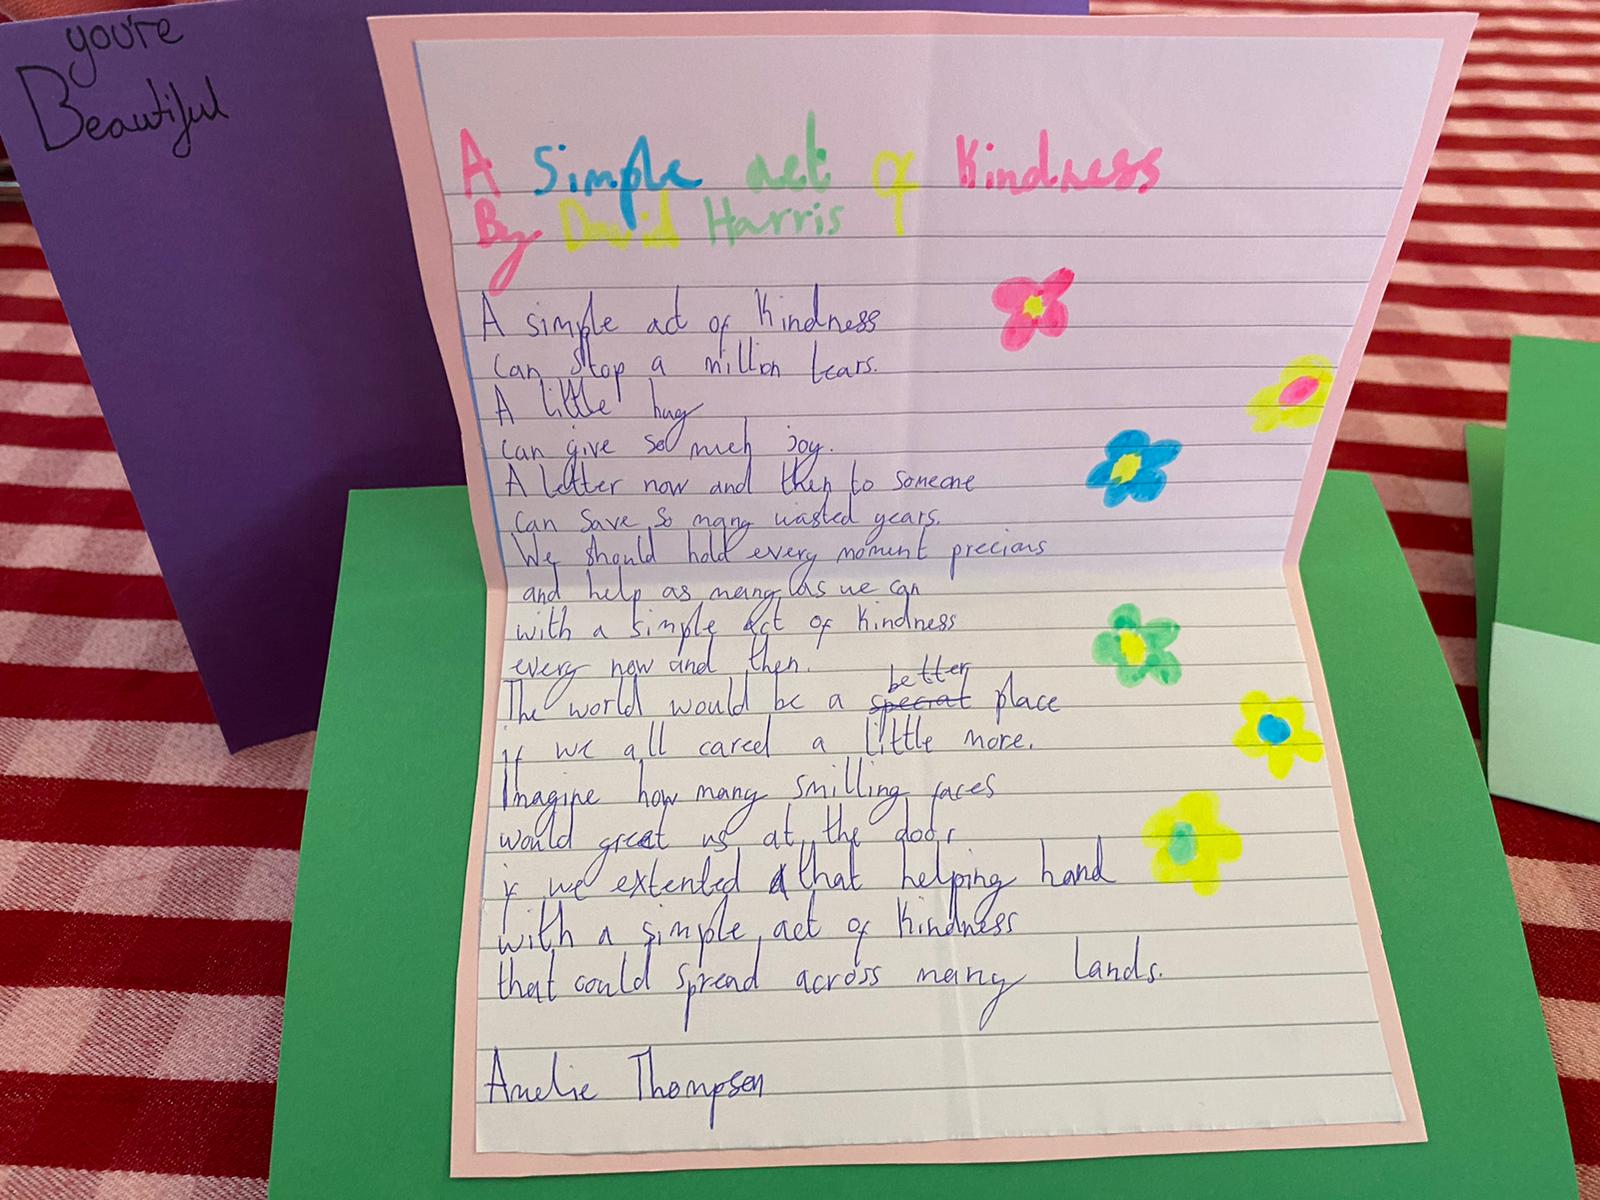 you're
Beautiful
A Simple act of Kindness
By David Harris
A simple act of Kindness
can stop a million tears.
A little hug
can give so much joy.
A letter now and then to someone
can save so many wasted years.
We should hold every moment precious
and help as many as we can
with a simple act of kindness
every now and then.
better
The world would be a special place
if we all cared a little more.
Imagine how many smilling faces
would greet us at the door
if we extented that helping hand
with a simple act of kindness
that could spread across many lands.
Amelie Thompson